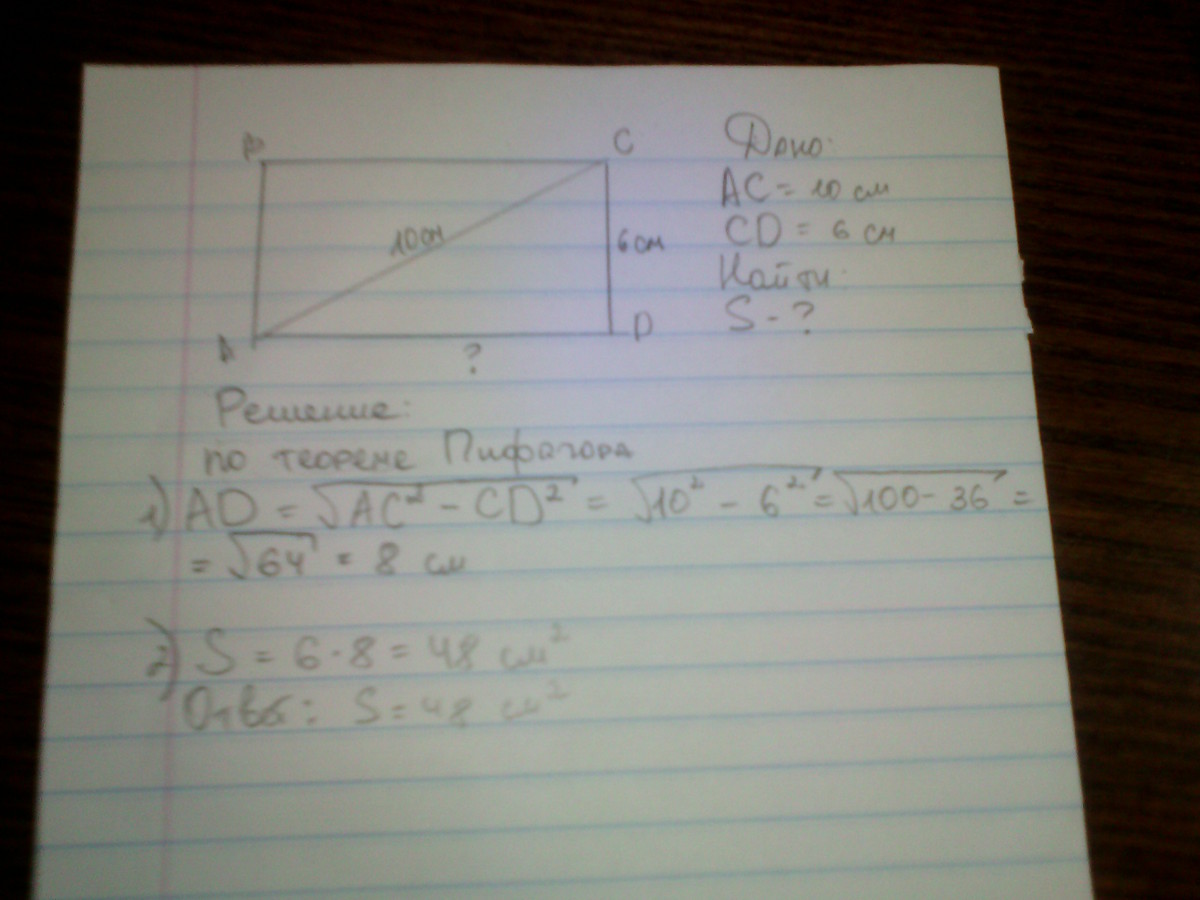 B C
10 см
6 см
A D
?
Дано:
AC = 10 см
CD = 6 см
Найти:
S - ?
Решение:
по теореме Пифагора
1) AD = √AC² - CD² = √10² - 6² = √100 - 36 =
= √64 = 8 см
2) S = 6 · 8 = 48 см²
Ответ: S = 48 см²